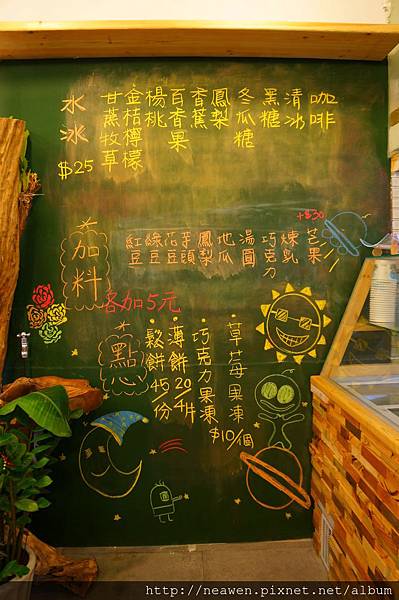 水冰
$25
甘蔗牧草
金桔檸檬
楊桃
百香果
香蕉
鳳梨
冬瓜糖
黑糖
清冰
咖啡
加料
各加5元
紅豆
綠豆
花豆
芋頭
鳳梨
地瓜
湯圓
巧克力
煉乳
芒果
+$30
點心
鬆餅45/份
薄餅20/4片
巧克力果凍
草莓果凍
$10/個
http://neawen.pixnet.net/album